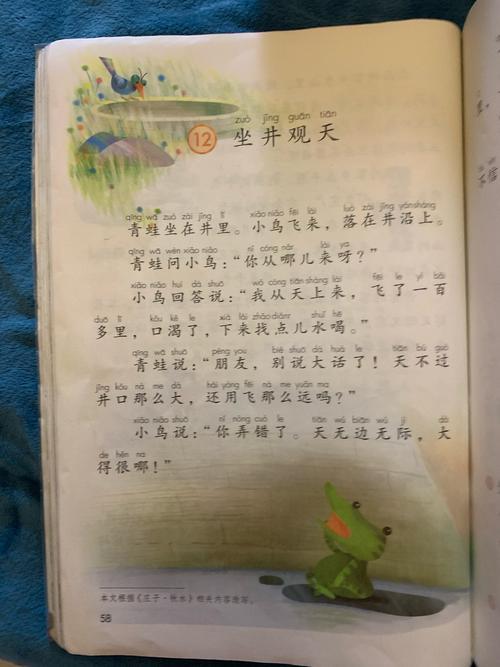 zuò jǐng guān tiān
12 坐井观天
qīng wā zuò zài jǐng lǐ xiǎo niǎo fēi lái luò zài jǐng yán shàng
青蛙坐在井里。小鸟飞来，落在井沿上。
qīng wā wèn xiǎo niǎo nǐ cóng nǎr lái ya
青蛙问小鸟：“你从哪儿来呀？”
xiǎo niǎo huí dá shuō wǒ cóng tiān shàng lái fēi le yì bǎi
小鸟回答说：“我从天上来，飞了一百
duō lǐ kǒu kě le xià lái zhǎo diǎnr shuǐ hē
多里，口渴了，下来找点儿水喝。”
qīng wā shuō péng you bié shuō dà huà le tiān bú guò
青蛙说：“朋友，别说大话了！天不过
jǐng kǒu nà me dà hái yòng fēi nà me yuǎn ma
井口那么大，还用飞那么远吗？”
xiǎo niǎo shuō nǐ nòng cuò le tiān wú biān wú jì dà
小鸟说：“你弄错了。天无边无际，大
de hěn na
得很哪！”
本文根据《庄子·秋水》相关内容改写。
58